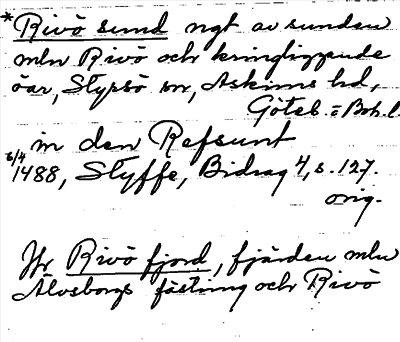 *Rivö sund ngt av sunden
mln Rivö och kringliggande
öar, Styrsö sn, Askims hd,
Göteb. o Boh. l.
in den Refsunt
5/4 1488, Styffe, Bidrag 4, s. 127.
orig.
Jfr Rivö fjord, fjärden mln
Älvsborgs fästning och Rivö